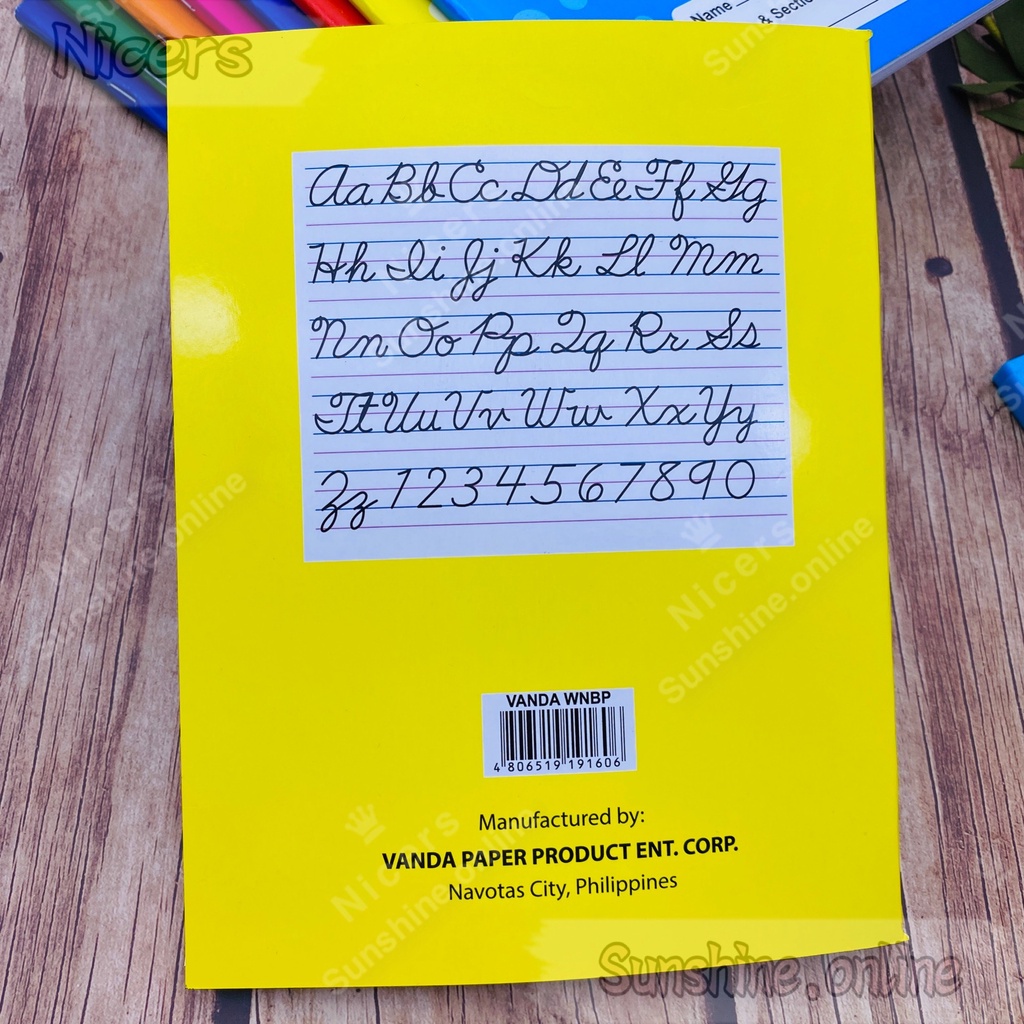 Nicers
Name
& Sectio
Aa Bb Cc Dd Ee Ff Gg
Hh Ii Jj Kk Ll Mm
Nn Oo Pp Qq Rr Ss
Tt Uu Vv Ww Xx Yy
Zz 1 2 3 4 5 6 7 8 9 0
Nicers
Sunshine.online
VANDA WNBP
4 806519 191606
Manufactured by:
VANDA PAPER PRODUCT ENT. CORP.
Navotas City, Philippines
Nicers
Sunshine.online
Sunshine.online